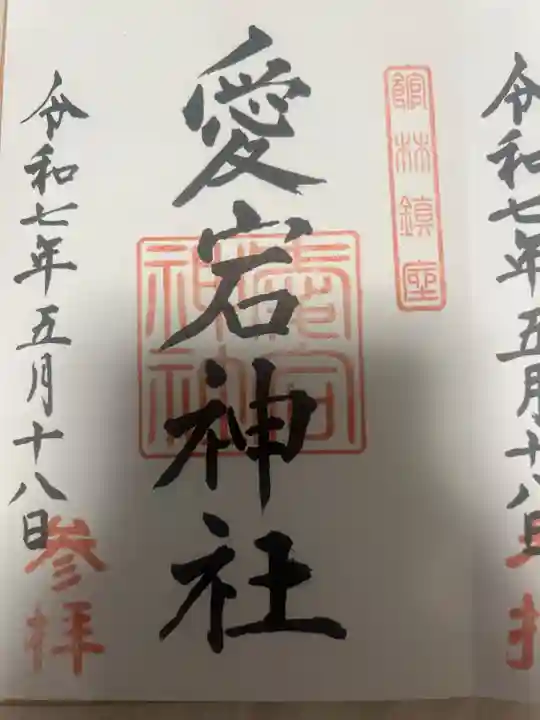 令和七年五月十八日
館林鎮座
愛宕神社
愛宕
神社
令和七年五月十八日
参拝